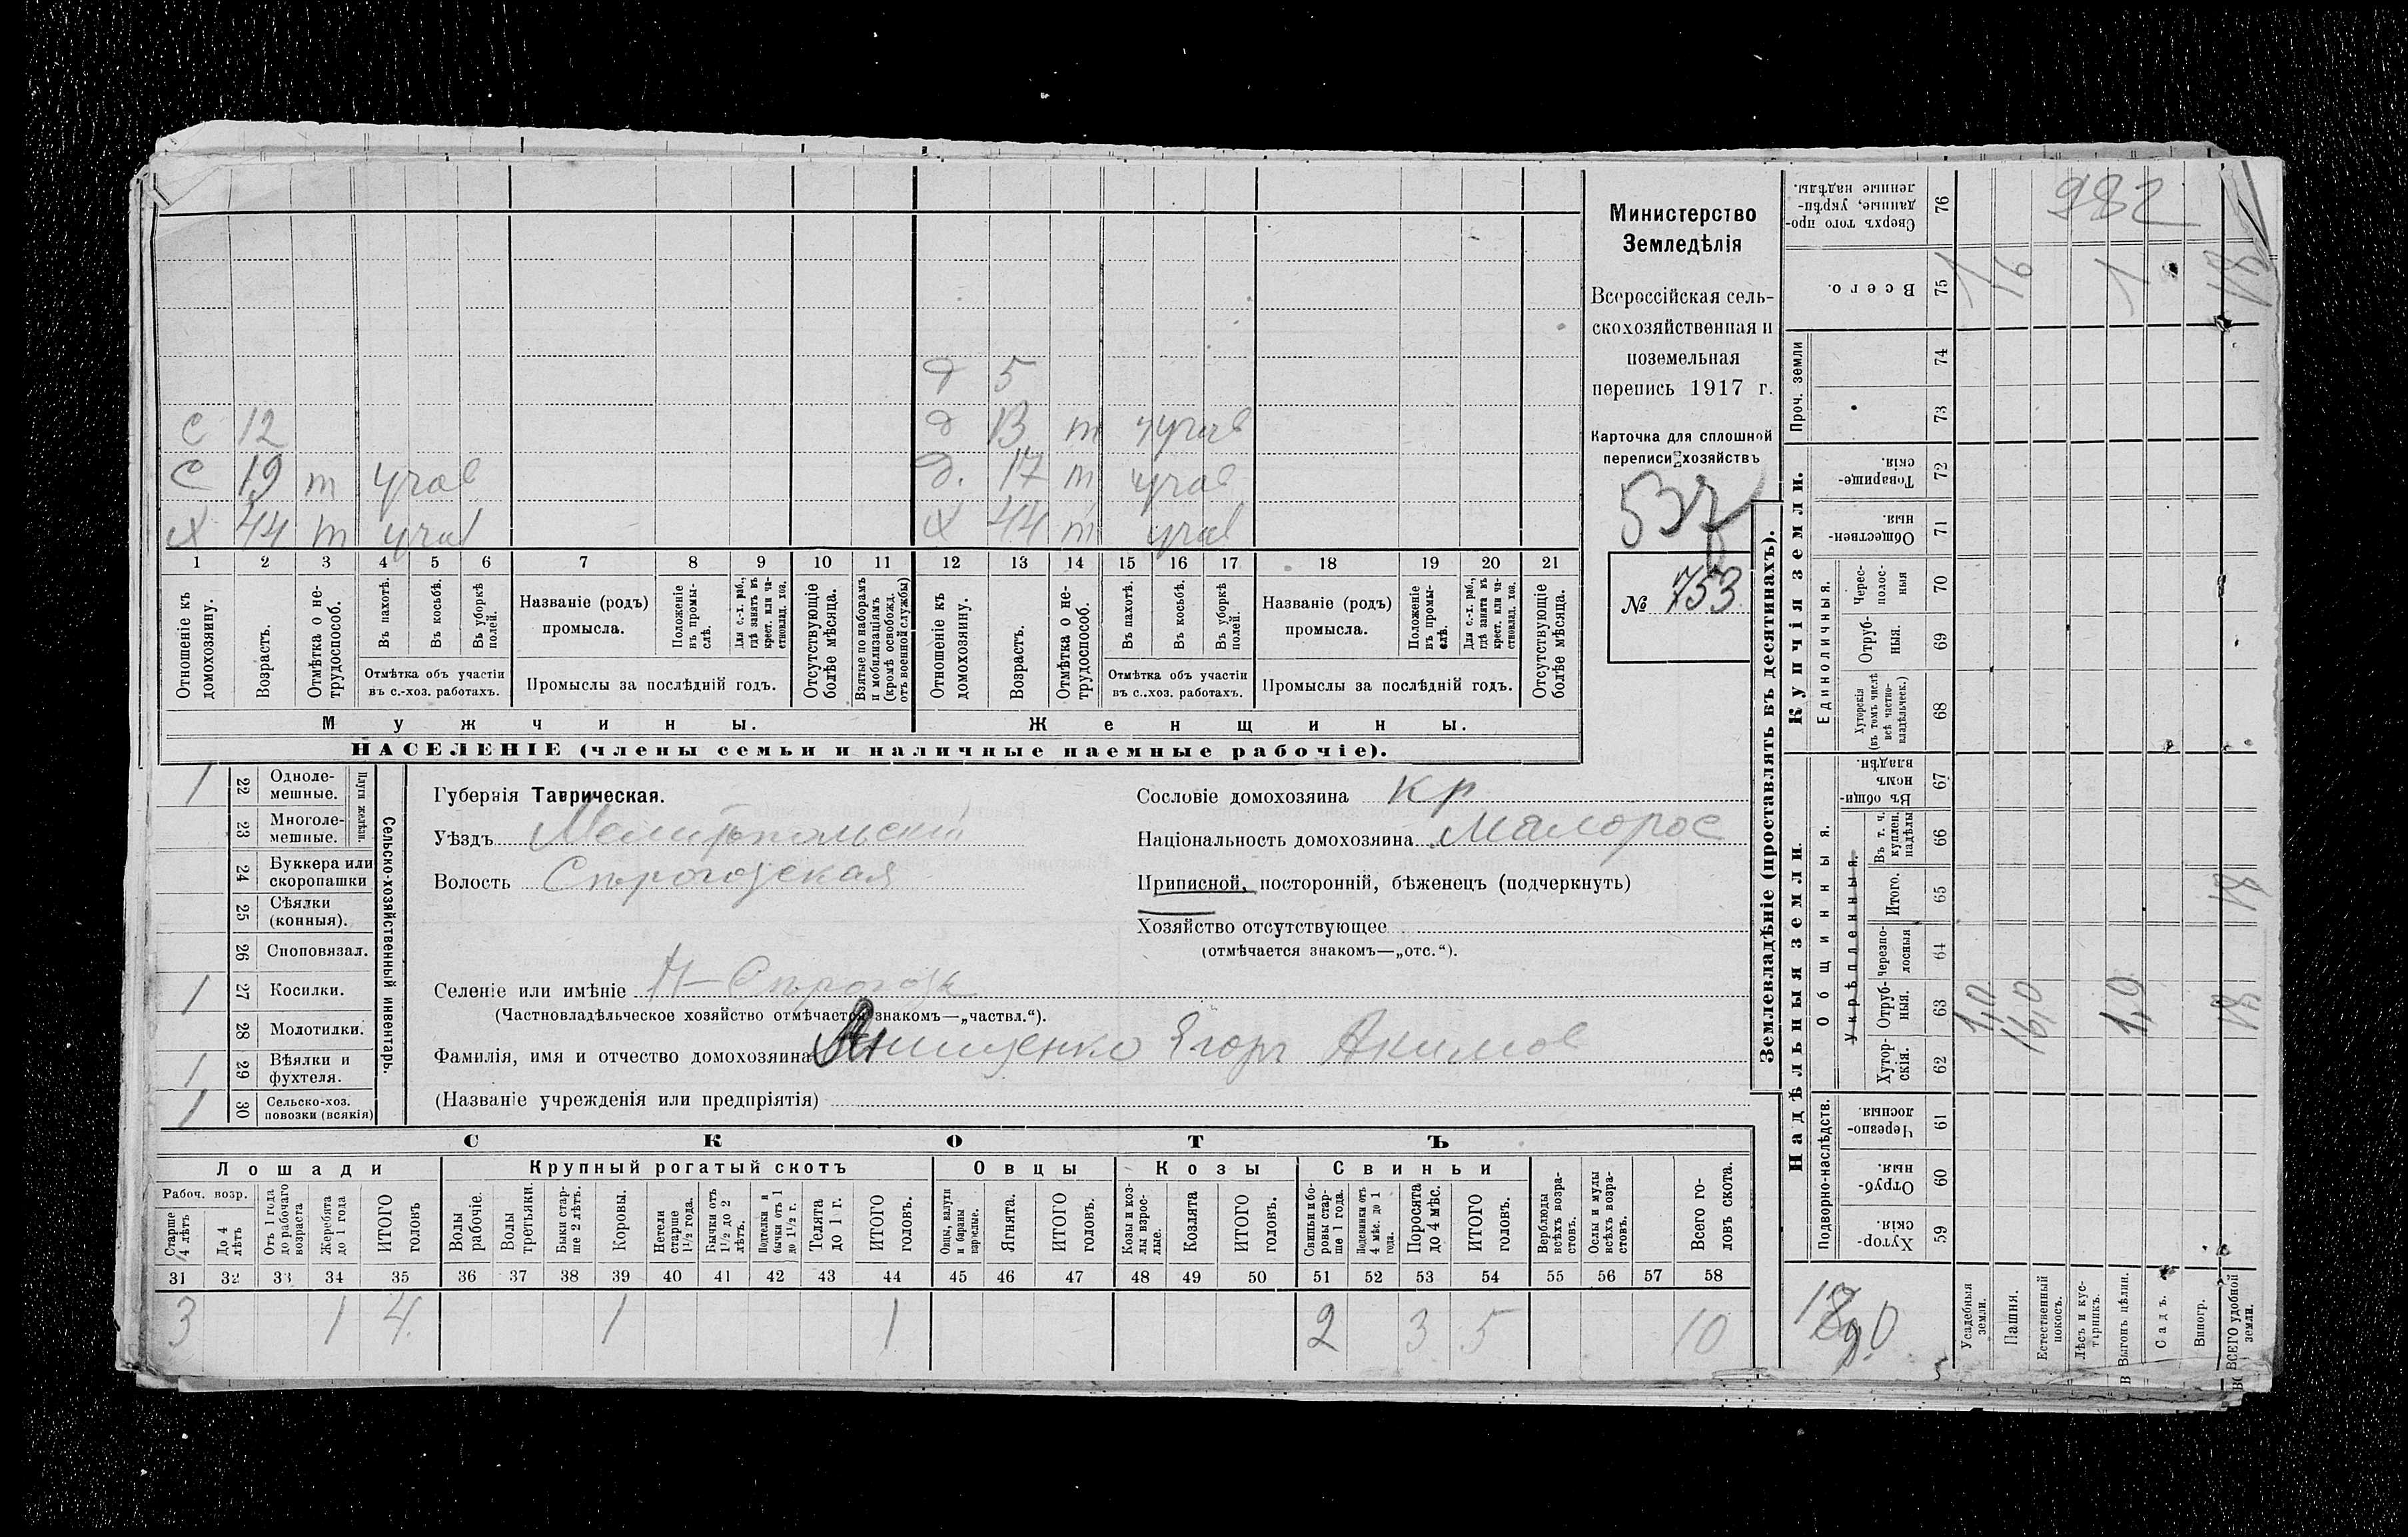 С 12
С 19 т учав
Х 44 т учав
д 5
д 13 т учав
д. 17 т учав
Х 44 т учав
1 2 3 4 5 6 7 8 9 10 11 12 13 14 15 16 17 18 19 20 21
Отношеніе къ домохозяину.
Возрастъ.
Отмѣтка о не-трудоспособ.
Въ пахотѣ.
Въ косьбѣ.
Въ уборкѣ полей.
Отмѣтка объ участіи
въ с.-хоз. работахъ.
Названіе (родъ)
промысла.
Положеніе въ промы-слѣ.
Для с.-х. раб., гдѣ занятъ въ крест. или ча-стновлад. хоз.
Промыслы за послѣдній годъ.
Отсутствующіе болѣе мѣсяца.
Взятые по наборамъ и мобилизаціямъ (кромѣ освобожд. отъ военной службы)
Отношеніе къ домохозяину.
Возрастъ.
Отмѣтка о не-трудоспособ.
Въ пахотѣ.
Въ косьбѣ.
Въ уборкѣ полей.
Отмѣтка объ участіи
въ с..хоз. работахъ.
Названіе (родъ)
промысла.
Положеніе въ промы-слѣ.
Для с.-х. раб., гдѣ занята въ крест. или ча-стновлад. хоз.
Промыслы за послѣдній годъ.
Отсутствующіе болѣе мѣсяца.
Мужчины.
Женщины.
НАСЕЛЕНІЕ (члены семьи и наличные наемные рабочіе).
Министерство
Земледѣлія
Всероссійская сель-
скохозяйственная и
поземельная
перепись 1917 г.
Карточка для сплошной
переписи хозяйствъ
537
№ 753
Сельско-хозяйственный инвентарь.
Плуги желѣзн.
1 22 Одноле-мешные.
23 Многоле-мешные.
24 Буккера или скоропашки
25 Сѣялки (конныя).
26 Сноповязал.
1 27 Косилки.
28 Молотилки.
1 29 Вѣялки и фухтеля.
1 30 Сельско-хоз. повозки (всякія)
Губернія Таврическая.
Уѣздъ Мелитопольскій
Волость Сѣрогозская
Селеніе или имѣніе Н-Сѣрогозы
(Частновладѣльческое хозяйство отмѣчается знакомъ—„частвл.“).
Фамилія, имя и отчество домохозяина Анищенко Ягоръ Акимов
(Названіе учрежденія или предпріятія)
Сословіе домохозяина кр
Національность домохозяина Малорос
Приписной, посторонній, бѣженецъ (подчеркнуть)
Хозяйство отсутствующее
(отмѣчается знакомъ—„отс.“).
СКОТЪ
Лошади
Крупный рогатый скотъ
Овцы
Козы
Свиньи
Рабоч. возр.
Старше 4 лѣтъ
До 4 лѣтъ
Отъ 1 года до рабочаго возраста
Жеребята до 1 года
ИТОГО головъ
Волы рабочіе.
Волы третьяки.
Быки стар-ше 2 лѣтъ.
Коровы.
Нетели старше 1½ года.
Бычки отъ 1½ до 2 лѣтъ.
Подтелки и бычки отъ 1 до 1½ г.
Телята до 1 г.
ИТОГО головъ.
Овцы, валухи и бараны взрослые.
Ягнята.
ИТОГО головъ.
Козы и коз-лы взрос-лые.
Козлята
ИТОГО головъ.
Свиньи и бо-ровы стар-ше 1 года.
Подсвинки отъ 4 мѣс. до 1 года.
Поросята до 4 мѣс.
ИТОГО головъ.
Верблюды всѣхъ возра-стовъ.
Ослы и мулы всѣхъ возра-стовъ.
Всего го-ловъ скота.
31 32 33 34 35 36 37 38 39 40 41 42 43 44 45 46 47 48 49 50 51 52 53 54 55 56 57 58
3 1 4 1 1 2 3 5 10
Землевладѣніе (проставлять въ десятинахъ).
982
Сверхъ того про-данные, укрѣп-ленные надѣлы. 76
Всего. 75 1 16 1 18
Проч. земли
74
73
Купчія земли.
Товарище-скія. 72
Обществен-ныя. 71
Единоличныя.
Черес-полос-ныя 70
Отруб-ныя. 69
Хуторскія (въ томъ числѣ всѣ частно-владѣльческ.) 68
Надѣльныя земли.
Общинныя.
Въ общи-номъ владѣн. 67
Укрѣпленныя.
Въ т. ч. куплен. надѣлы 66
Итого. 65 18
Черезпо-лосныя 64
Отруб-ныя. 63 1,0 16,0 1,0 18
Хутор-скія. 62
Подворно-наслѣдств.
Черезпо-лосныя. 61
Отруб-ныя. 60
Хутор-скія. 59
Усадебныя земли.
Пашня.
Естественный покосъ.
Лѣсъ и кус-тарникъ.
Выгонъ цѣлин.
Садъ.
Виногр.
ВСЕГО удобной земли.